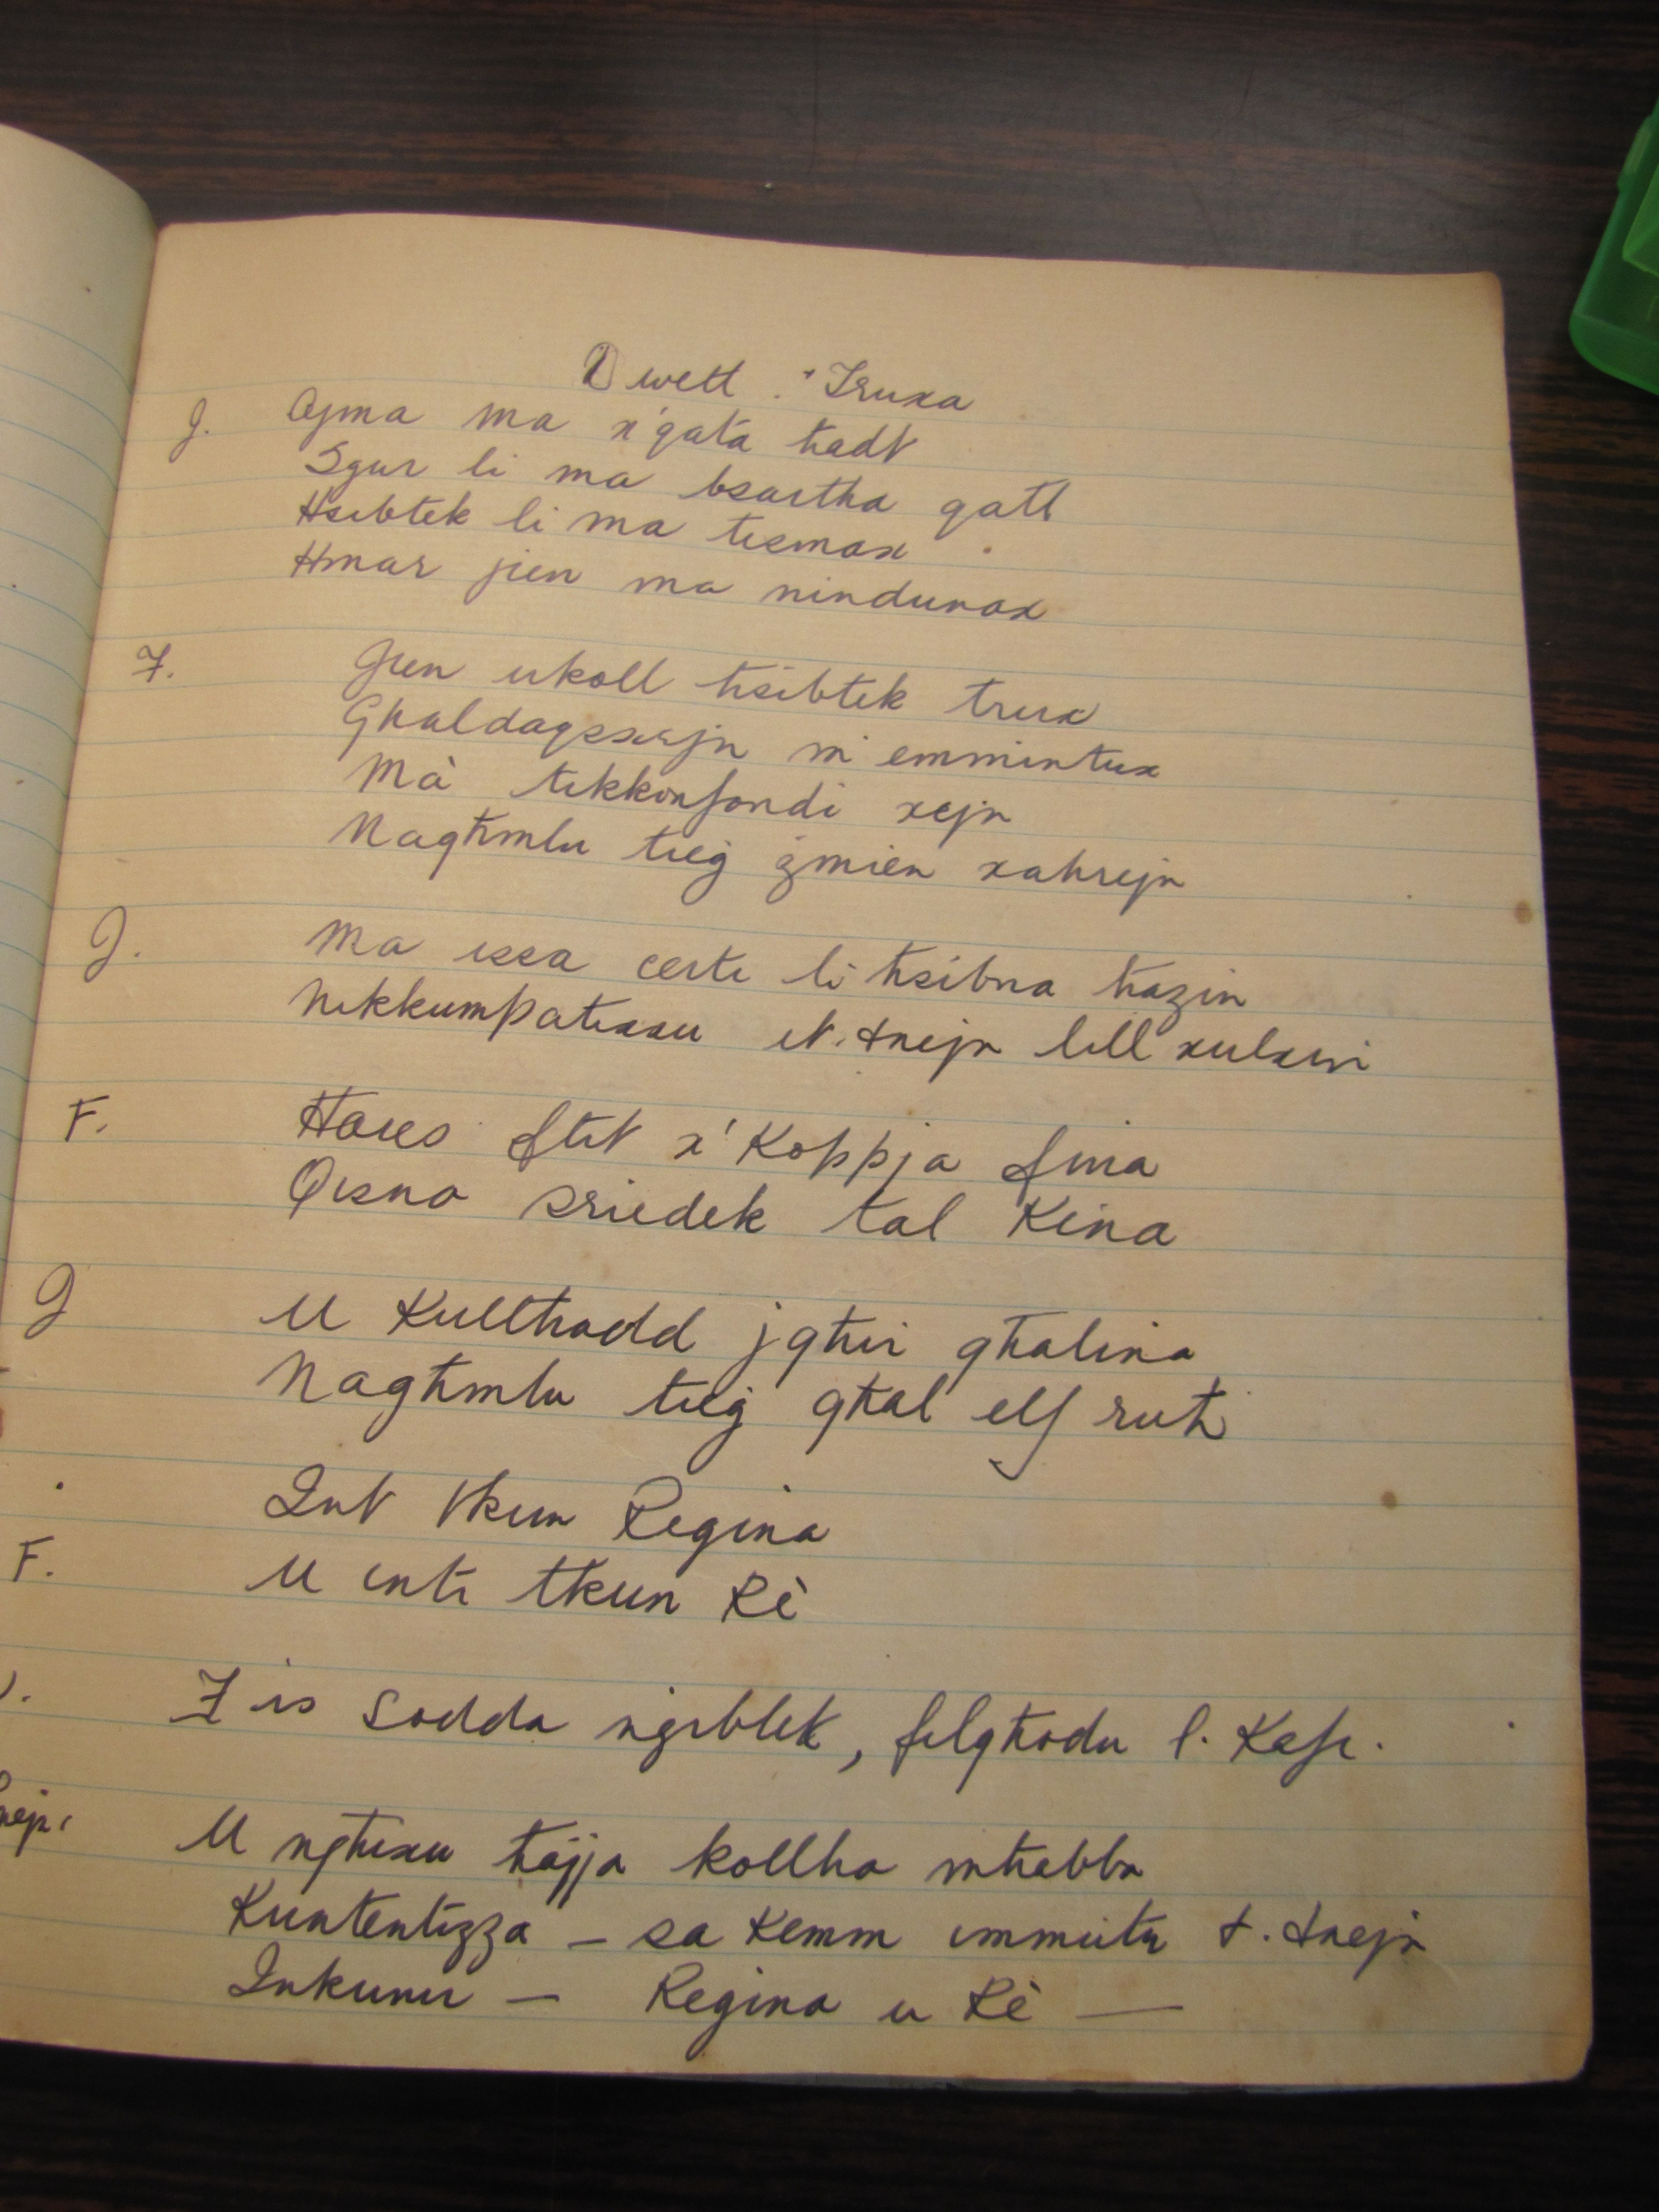 Dwett. "Truxa
G. Ajma ma x'qata ħadt
Sgur li ma bsartha qatt
Ħsibtek li ma tismax
Ħmar jien ma nindunax
F. Jien ukoll ħsibtek trux
Għaldaqsxejn m'emmintux
Mà tikkonfondi xejn
Nagħmlu tieġ żmien xahrejn
G. Ma issa certi li ħsibna ħazin
Nikkumpatixxu it. tnejn lill xulxin
F. Ħares ftit x'Koppja fina
Qisna sriedek tal Kina
G U Kullħadd jgħir għalina
Nagħmlu tieġ għal elf ruħ
Int tkun Regina
F. U inti tkun Rè
F is Sodda nġiblek, filgħodu l. Kafe.
nejn: U ngħixu ħajja kollha mħabba
Kuntentizza – sa Kemm immutu t. tnejn
Inkunu – Regina u Rè —